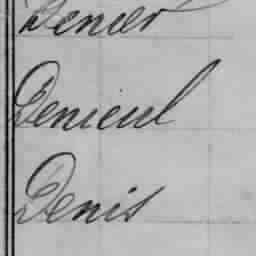 Denier
Denieul
Denis